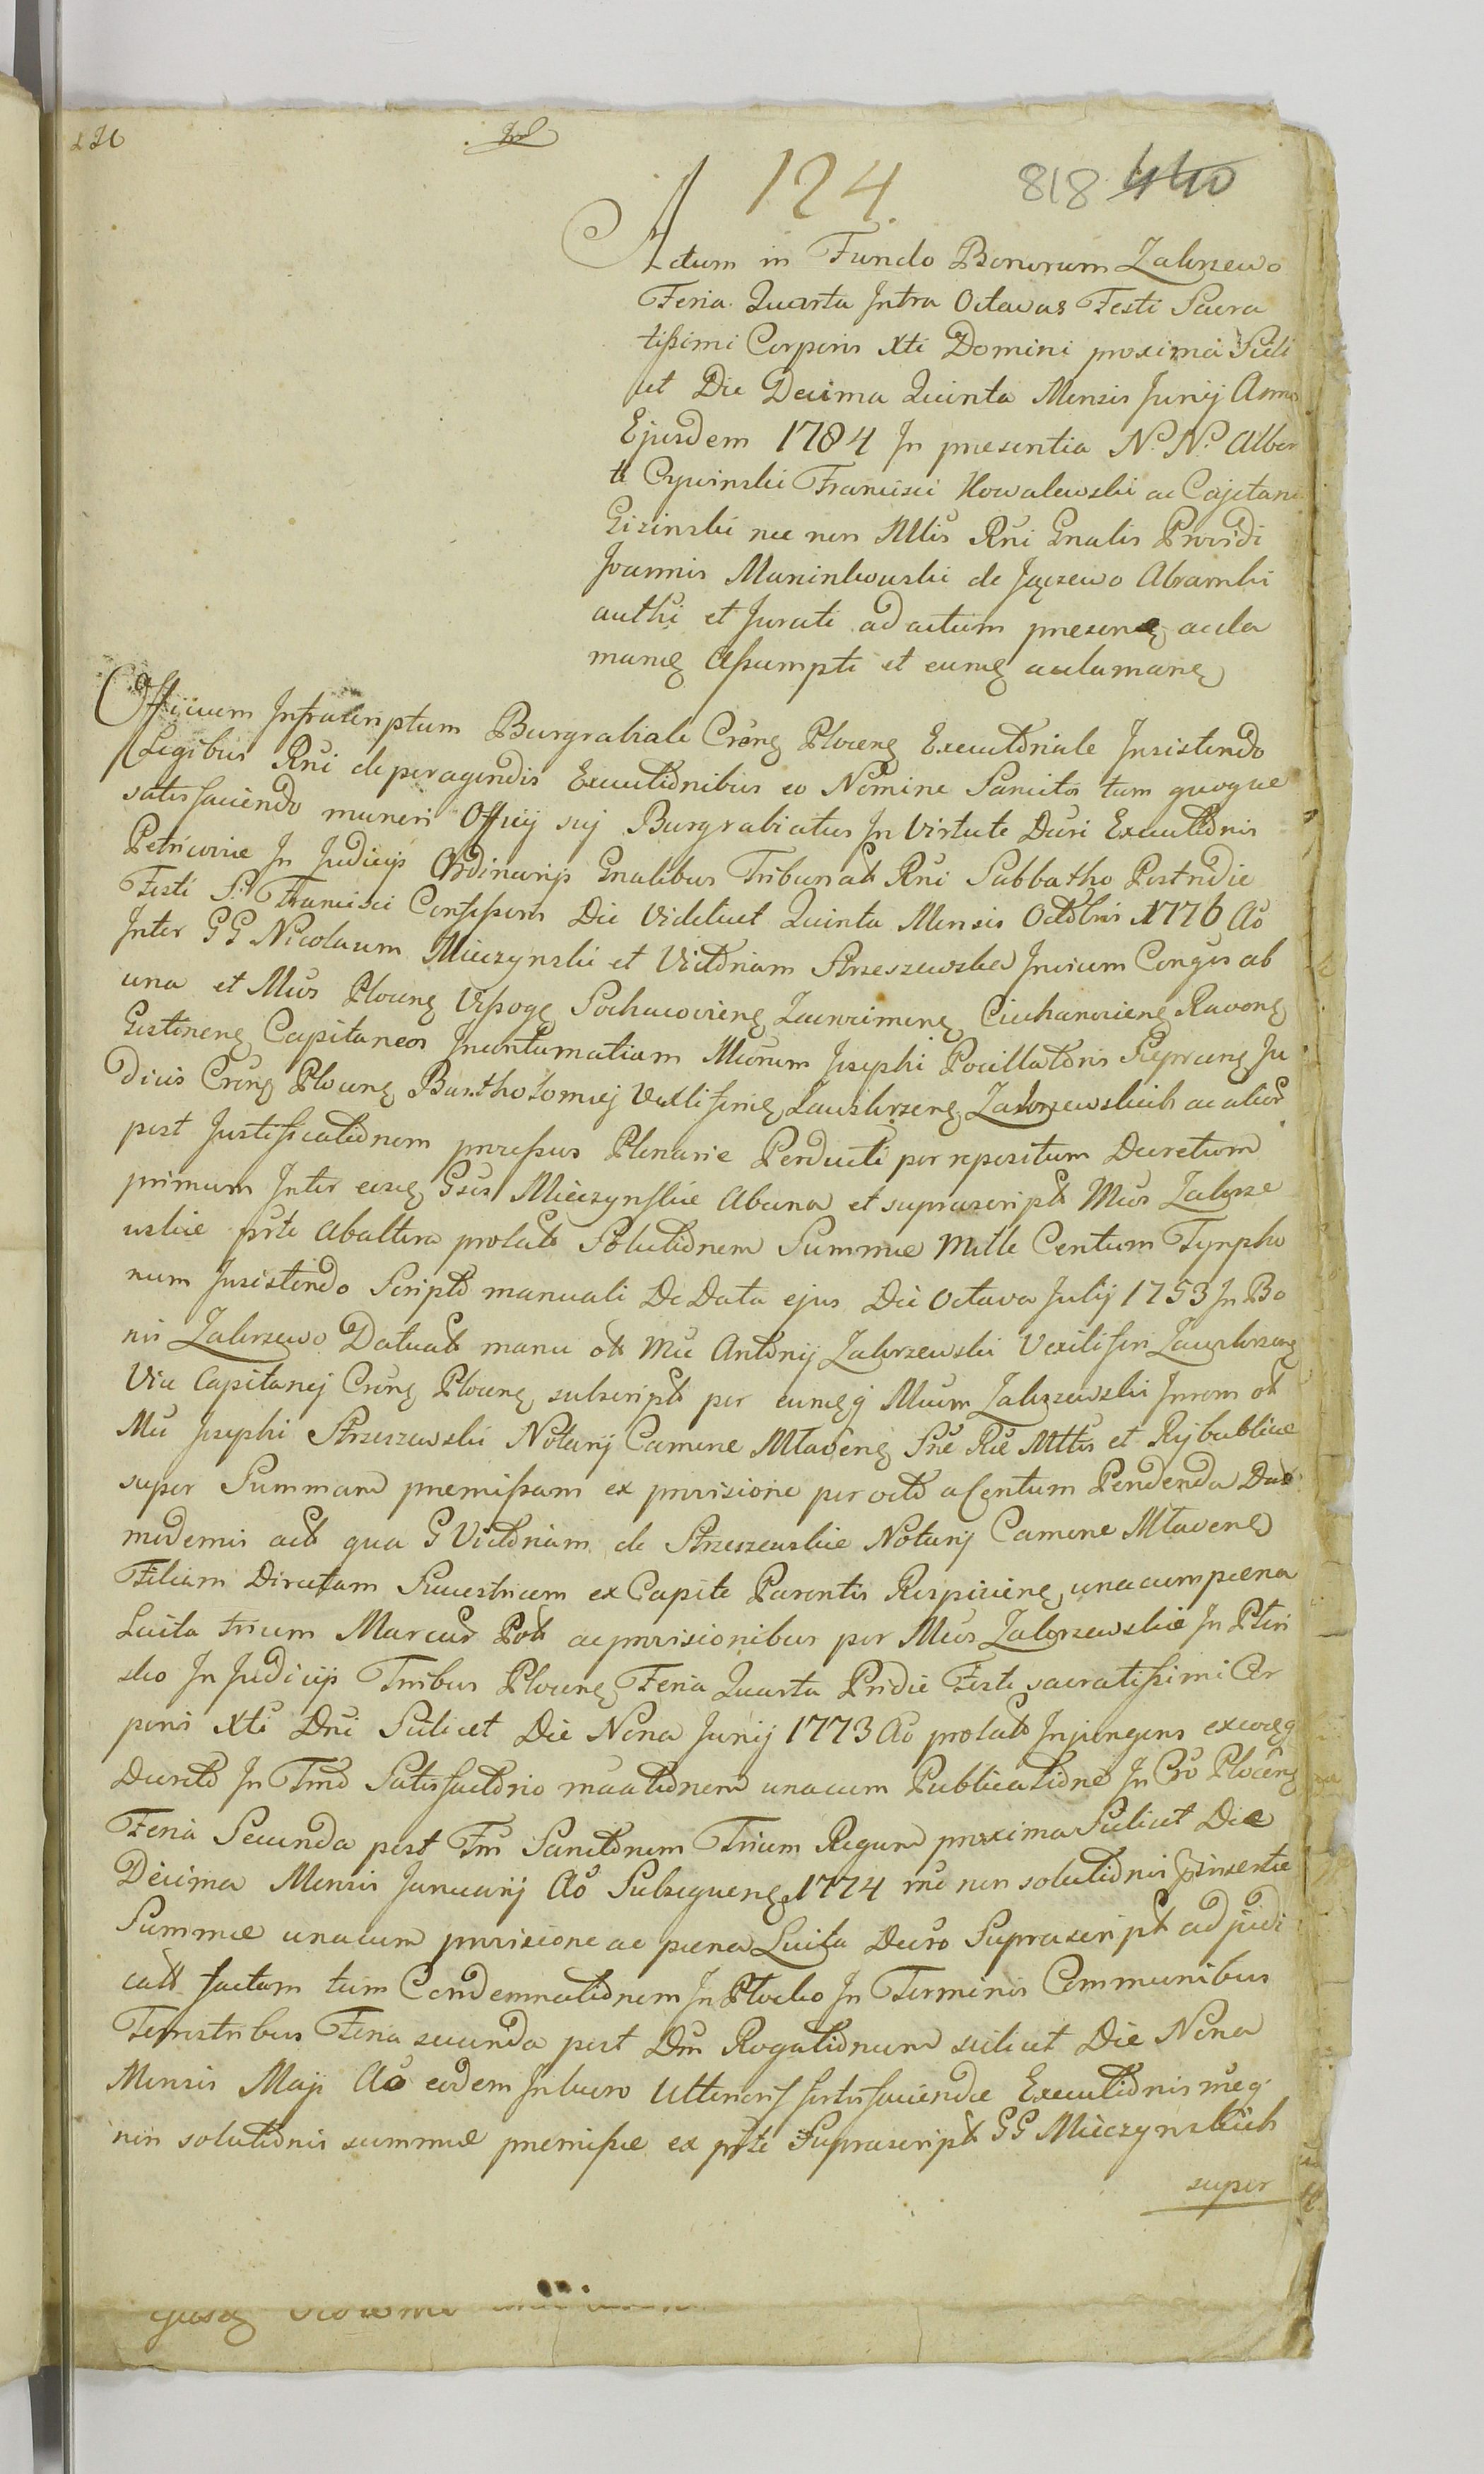 124.
818 440
Actum in Fundo Bonorum Zakrzewo
Feria Quarta Intra Octavas Festi Sacra
tißimi Corporis Xti Domini proxima Scili
cet Die Decima Quinta Mensis Junij Anno
Ejusdem 1784 In presentia N. N. Alber
ti Cywinski Francisci Kowalewski ac Cajetani
Gizinski nec non Mlis Rni Gnalis Providi
Joannis Maninkowski de Jączewo
authi et Jurati ad actum presene acla
mane Aßumpti et eume aclamane
Officium Infrascriptum Burgrabiale Crene Plocene Executoriale Insistendo
Legibus Rni de peragendis Executionibus eo Nomine Sancitis tum quoque
satisfaciendo muneri Officij sui Burgrabiatus In Virtute Decri Executionis
Petricoviæ In Judicijs Ordinarijs Gnalibus Tribunalt Rni Sabbatho Postridie
Festi S. Francisci Confeßoris Die Videlicet Quinta Mensis Octobris 1776 Ao
Inter GG Nicolaum Mieczynski et Victoriam Strzeszewska Invicem Conges ab
una et Mcos Plocene Vißoge Sochacoviene Zacrimene Ciechanoviene Ravone
Gostinene Capitaneos Incontumatiam Mcorum Josephi Pocillatoris Sieprcene Ju
dicis Crene Plocene Bartholomej Vexilliferide Zauskrzene Zakrzewskich ac alior
post Justificationem proceßus Plenarie Perducti per repositum Decretum
primum Inter eosde Gsos Mieczynskie Abuna et suprascript Mcos Zakrze
wskie prte Abaltera prolatt Solutionem Summæ Mille Centum Tynpho
num Insistendo Scripto manuali De Data ejus Die Octava Julij 1753 In Bo
nis Zakrzewo Datuatt manu olt Mci Antonij Zakrzewski Vexiliferi Zauskrzene
Vice Capitanej Crene Plocene subscript per eumeq Mcum Zakrzewski Inrem olt
Mci Josephi Strzeszewski Notarij Camene Mlavene Sne Rie Mttis et Rijbublicæ
super Summam premißam ex provisione per octo a Centum Pendenda Dut
modernis actt qua G Victoriam de Strzeszewskie Notarij Camene Mlavene
Filiam Directam Succestricem ex Capite Parentis Respiciene unacum pæna
Luita trium Marcar Polt ac provisionibus per Mcos Zakrzewskie In Płoń
sko In Judicijs Tribus Plocene Feria Quarta Pridie Festi sacratißimi Cor
poris Xti Dni Scilicet Die Nona Junij 1773 Ao prolatt Injungens exeoeq
Decreto In Tmo Satisfactorio unacum Publicatione In Cro Plocene
Feria Secunda post Fm Sanctorum Trium Regum proxima Scilicet Die
Decima Mensis Januarij Ao Subsequene 1774 rne non solutionis
Summæ unacum provisione ac pæna Luita Decro Suprascript adjudi
catt factam tum Condemnationem In Plocko In Terminis Communibus
Terrestribus Feria secunda post Dm Rogationum scilicet Die Nona
Mensis Maji Ao eodem Inlucro Ulterioris satisfaciendæ Executionis rneq
non solutionis summæ premißæ ex prte Suprascript GG Mieczynskich
super